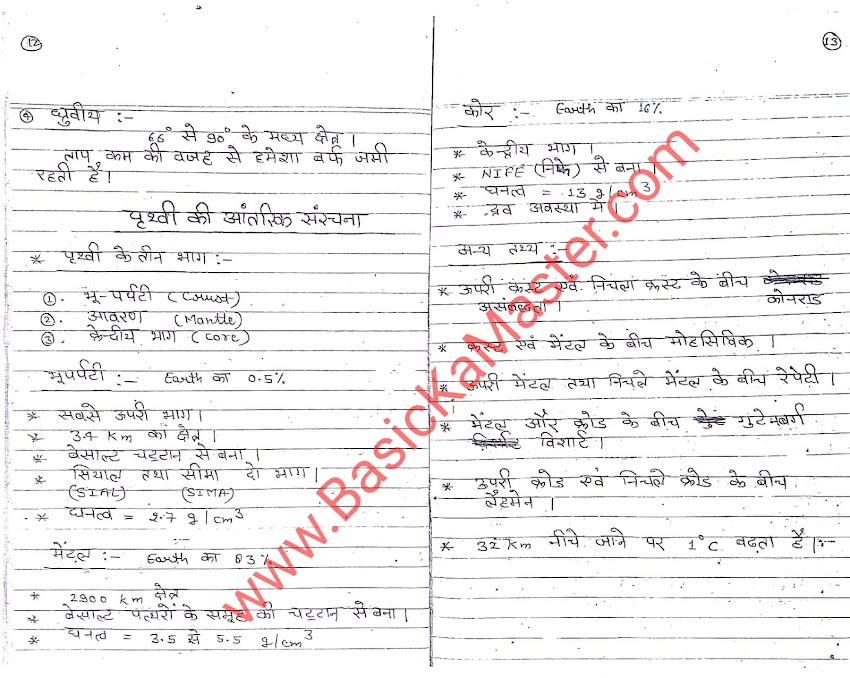 12
④ ध्रुवीय :-
66° से 90° के मध्य क्षेत्र ।
ताप कम की वजह से हमेशा बर्फ जमी
रहती है ।
पृथ्वी की आंतरिक संरचना
* पृथ्वी के तीन भाग :-
①. भू-पर्पटी (Crust)
②. आवरण (Mantle)
③. केन्द्रीय भाग (Core)
भूपर्पटी :- Earth का 0.5%
* सबसे ऊपरी भाग ।
* 34 Km का क्षेत्र ।
* बेसाल्ट चट्टान से बना ।
* सियाल तथा सीमा दो भाग ।
(SIAL) (SIMA)
* घनत्व = 2.7 g/cm³
मेंटल :- Earth का 83%
* 2900 km क्षेत्र
* बेसाल्ट पत्थरों के समूह की चट्टान से बना ।
* घनत्व = 3.5 से 5.5 g/cm³
13
कोर :- Earth का 16%
* केन्द्रीय भाग ।
* NIFE (निफे) से बना ।
* घनत्व = 13 g/cm³
* द्रव अवस्था में ।
अन्य तथ्य :-
* ऊपरी क्रस्ट एवं निचला क्रस्ट के बीच
असंबद्धता । कोनराड
* क्रस्ट एवं मेंटल के बीच मोहसिविक ।
* ऊपरी मेंटल तथा निचले मेंटल के बीच रेपेटी ।
* मेंटल और क्रोड के बीच गुटेनबर्ग
विशार्ट ।
* ऊपरी क्रोड एवं निचले क्रोड के बीच
लैहमेन ।
* 32 Km नीचे जाने पर 1°C बढ़ता है।:-
www.BasicKaMaster.com